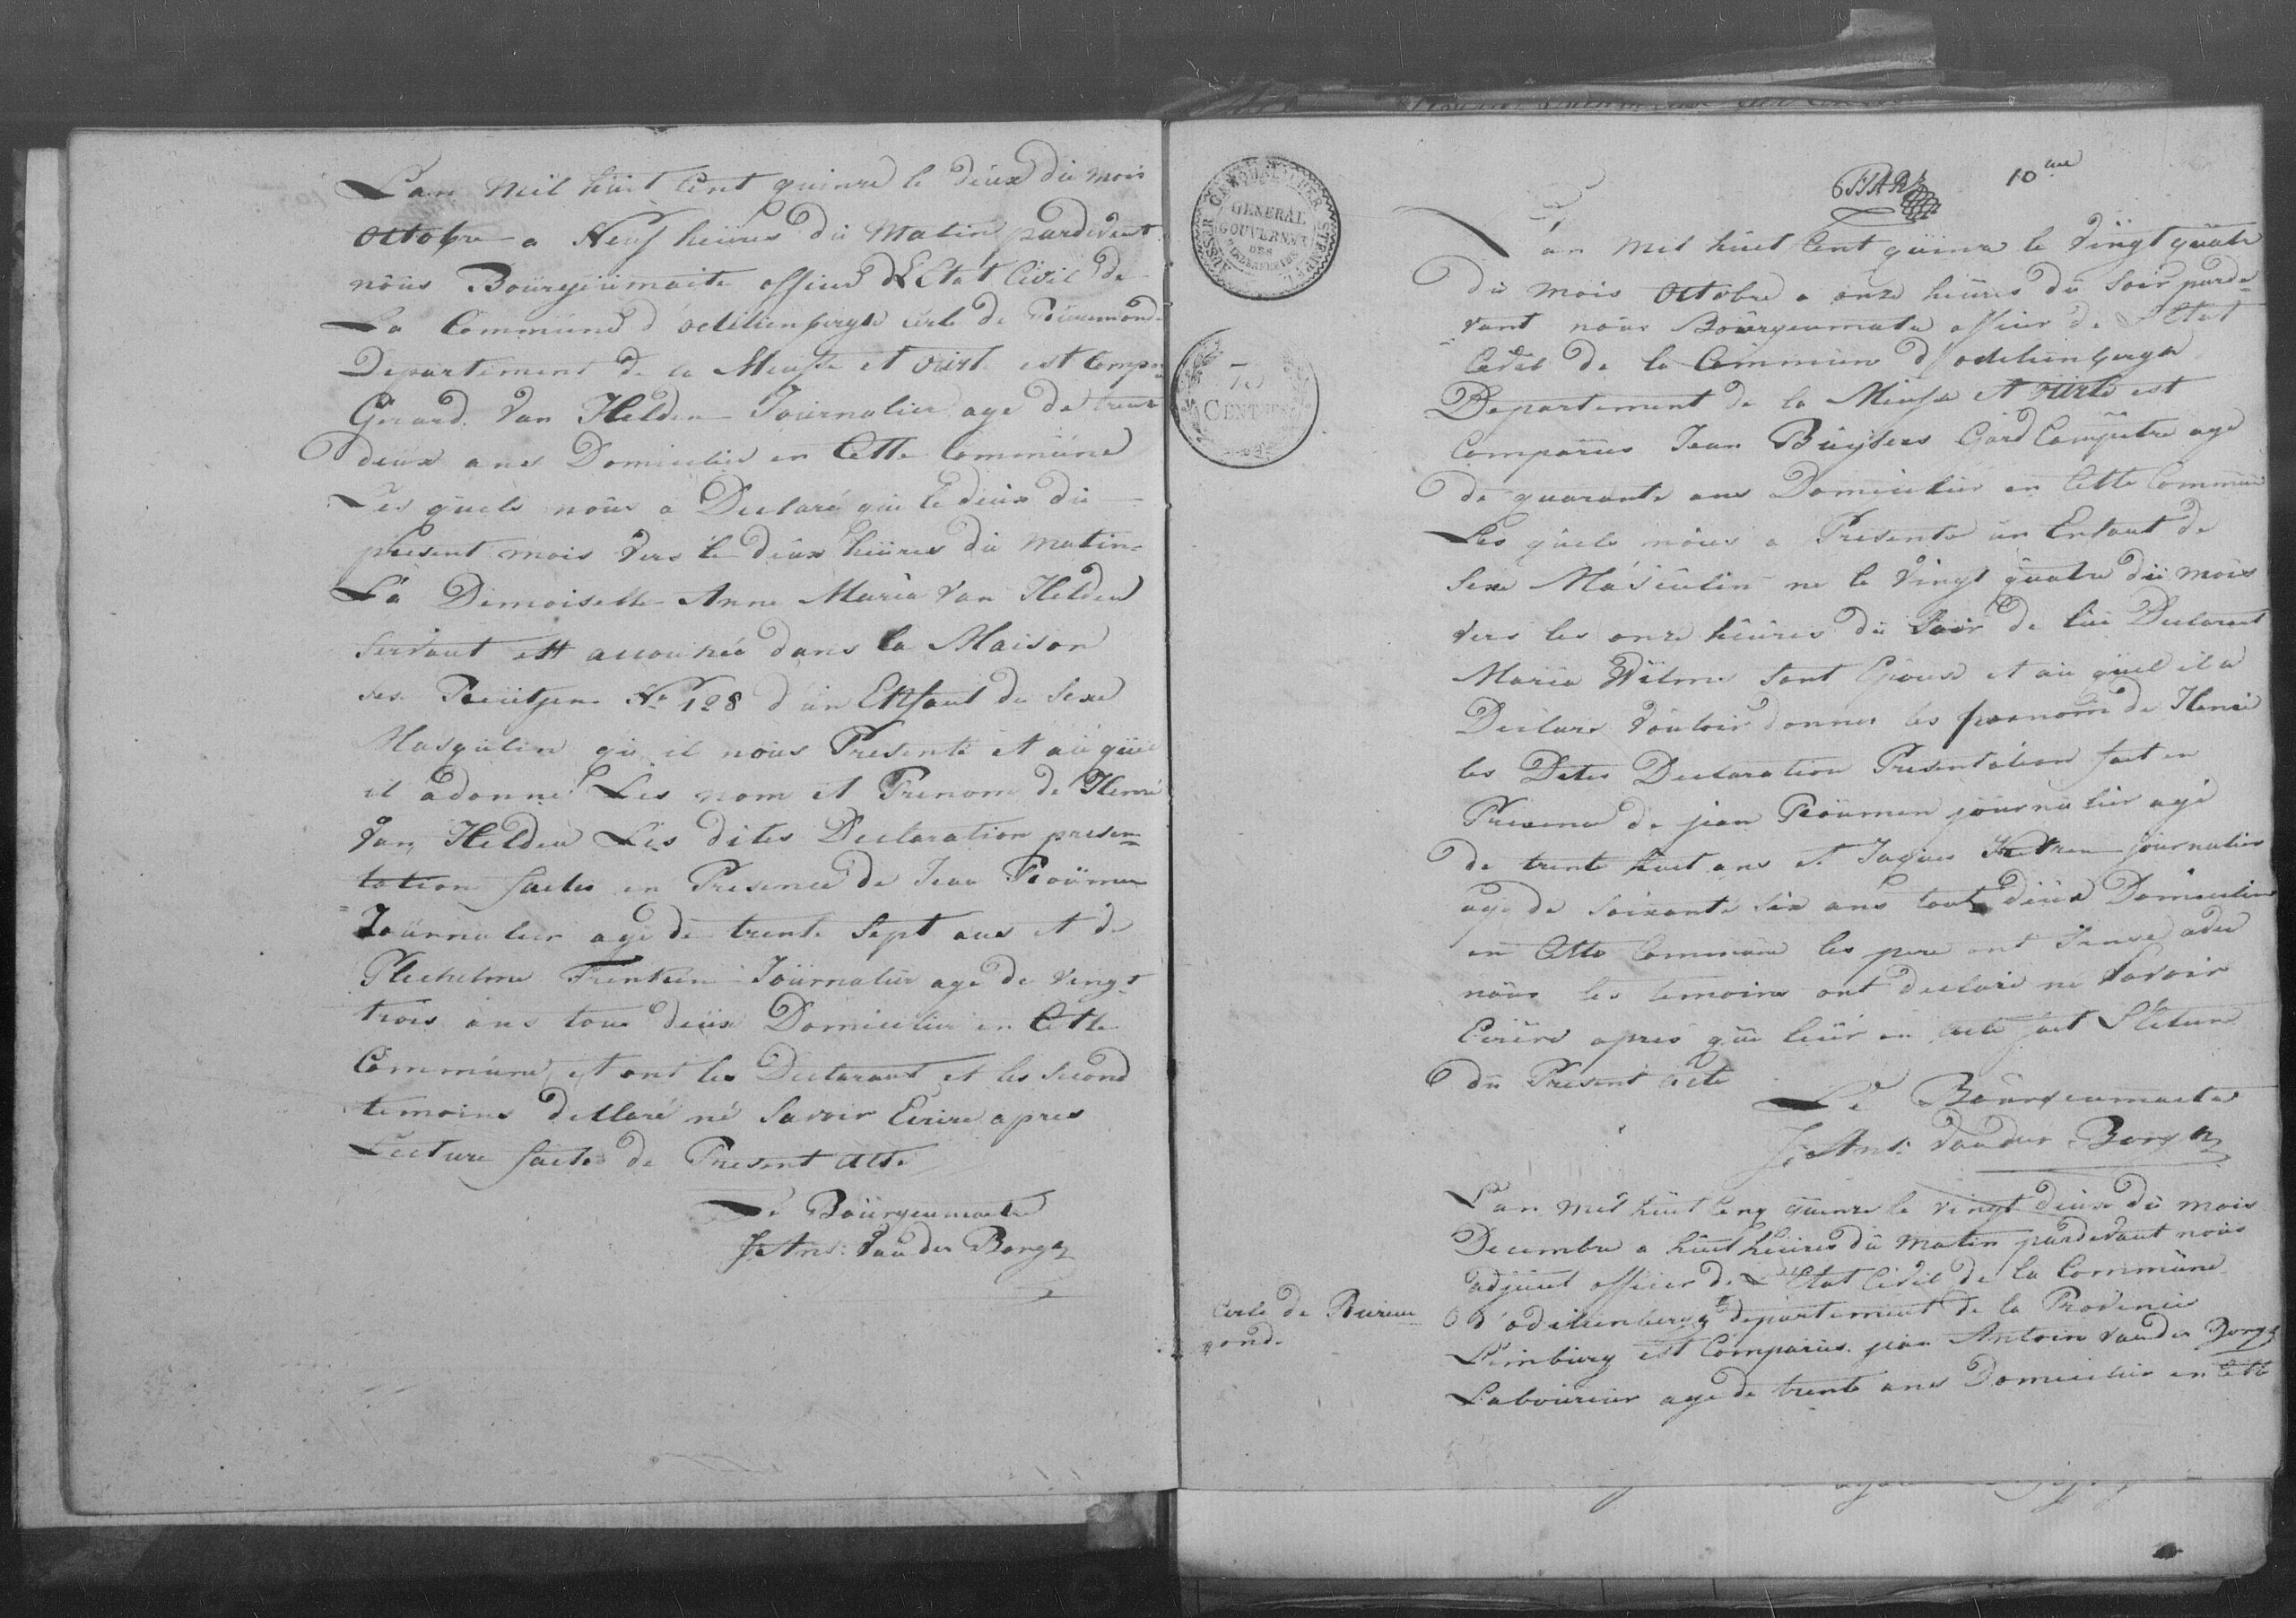 L'an mil huit Cent quinze le deux du mois
Octobre a Neuf heures du Matin pardevant
nous Bourgeumaitre officier d l'Etat Civil de
La Commune d'odilienberge cercle de Ruremonde
Departement de la Meuse et ourte est Comparu
Gerard Van Helden Journalier age de trente
deux ans Domicilier en Cette Commune
Les quels nous a Declaré que le deux du
present mois vers le deux heures du matin
La Demoiselle Anne Maria Van Helden
Servant est accouchée dans la Maison
No 128 d'un Enfant du Sexe
Masqulin qu'il nous Presenté et au quel
il a donné Les nom et Prenom de Henri
Van Helden Les dites Declaration presen=
tation faites en Presence de Jean Roumen
Journalier age de trente Sept ans et de
Plechelme Frenken Journalier age de vingt
trois ans tous deux Domicilier en Cette
Commune et ont les Declarant et les second
temoins declaré né Savoir Ecrire apres
Lecture faite de Present acte
Le Bourgeumaitre
J: Ant: Van der Borgh
GENERAL
GOUVERNEM
DES
75
CENT
10me
L'an mil huit Cent quinze le vingt quatre
du mois Octobre a onze heures du Soir parde=
vant nous Bourgeumaitre officier de l'Etat
Civil de la Commune d'odilienberge
Departement de la Meuse et ourte est
Comparus Jean Buysers Gard Campetre age
de quarante ans Domicilier en Cette Commune
Les quels nous a Presente un Enfant de
Sexe Masculin ne le vingt quatre du mois
vers les onze heures du Soir de lui Declarant
Maria Wilms Sont Epouse et au quel il a
Declare vouloir donner les prenom de Henri
les Dites Declaration Presentation fait en
Presence de jean Roumen journalier agé
de trente huit ans et Jaques journalier
age de soixante six ans tout deux Domicilier
en Cette Commune les pere ont Signé avec
nous les temoins ont declaré ne Savoir
Ecrire apres que leur en aete fait Lecture
du Present acte
Le Bourgeumaitre
J: Ant: Van der Borgh
L'an mil huit Cens quinze le vingt deux du mois
Decembre a huit heures du matin pardevant nous
adjoint officier de L'Etat Civil de la Commune
Cercle de Rureme
d'odilienberge departement de la Provincie
onde
Limburg est Comparus jean Antoin Van der Borgh
Laboureur age de trente ans Domicilier en Cette